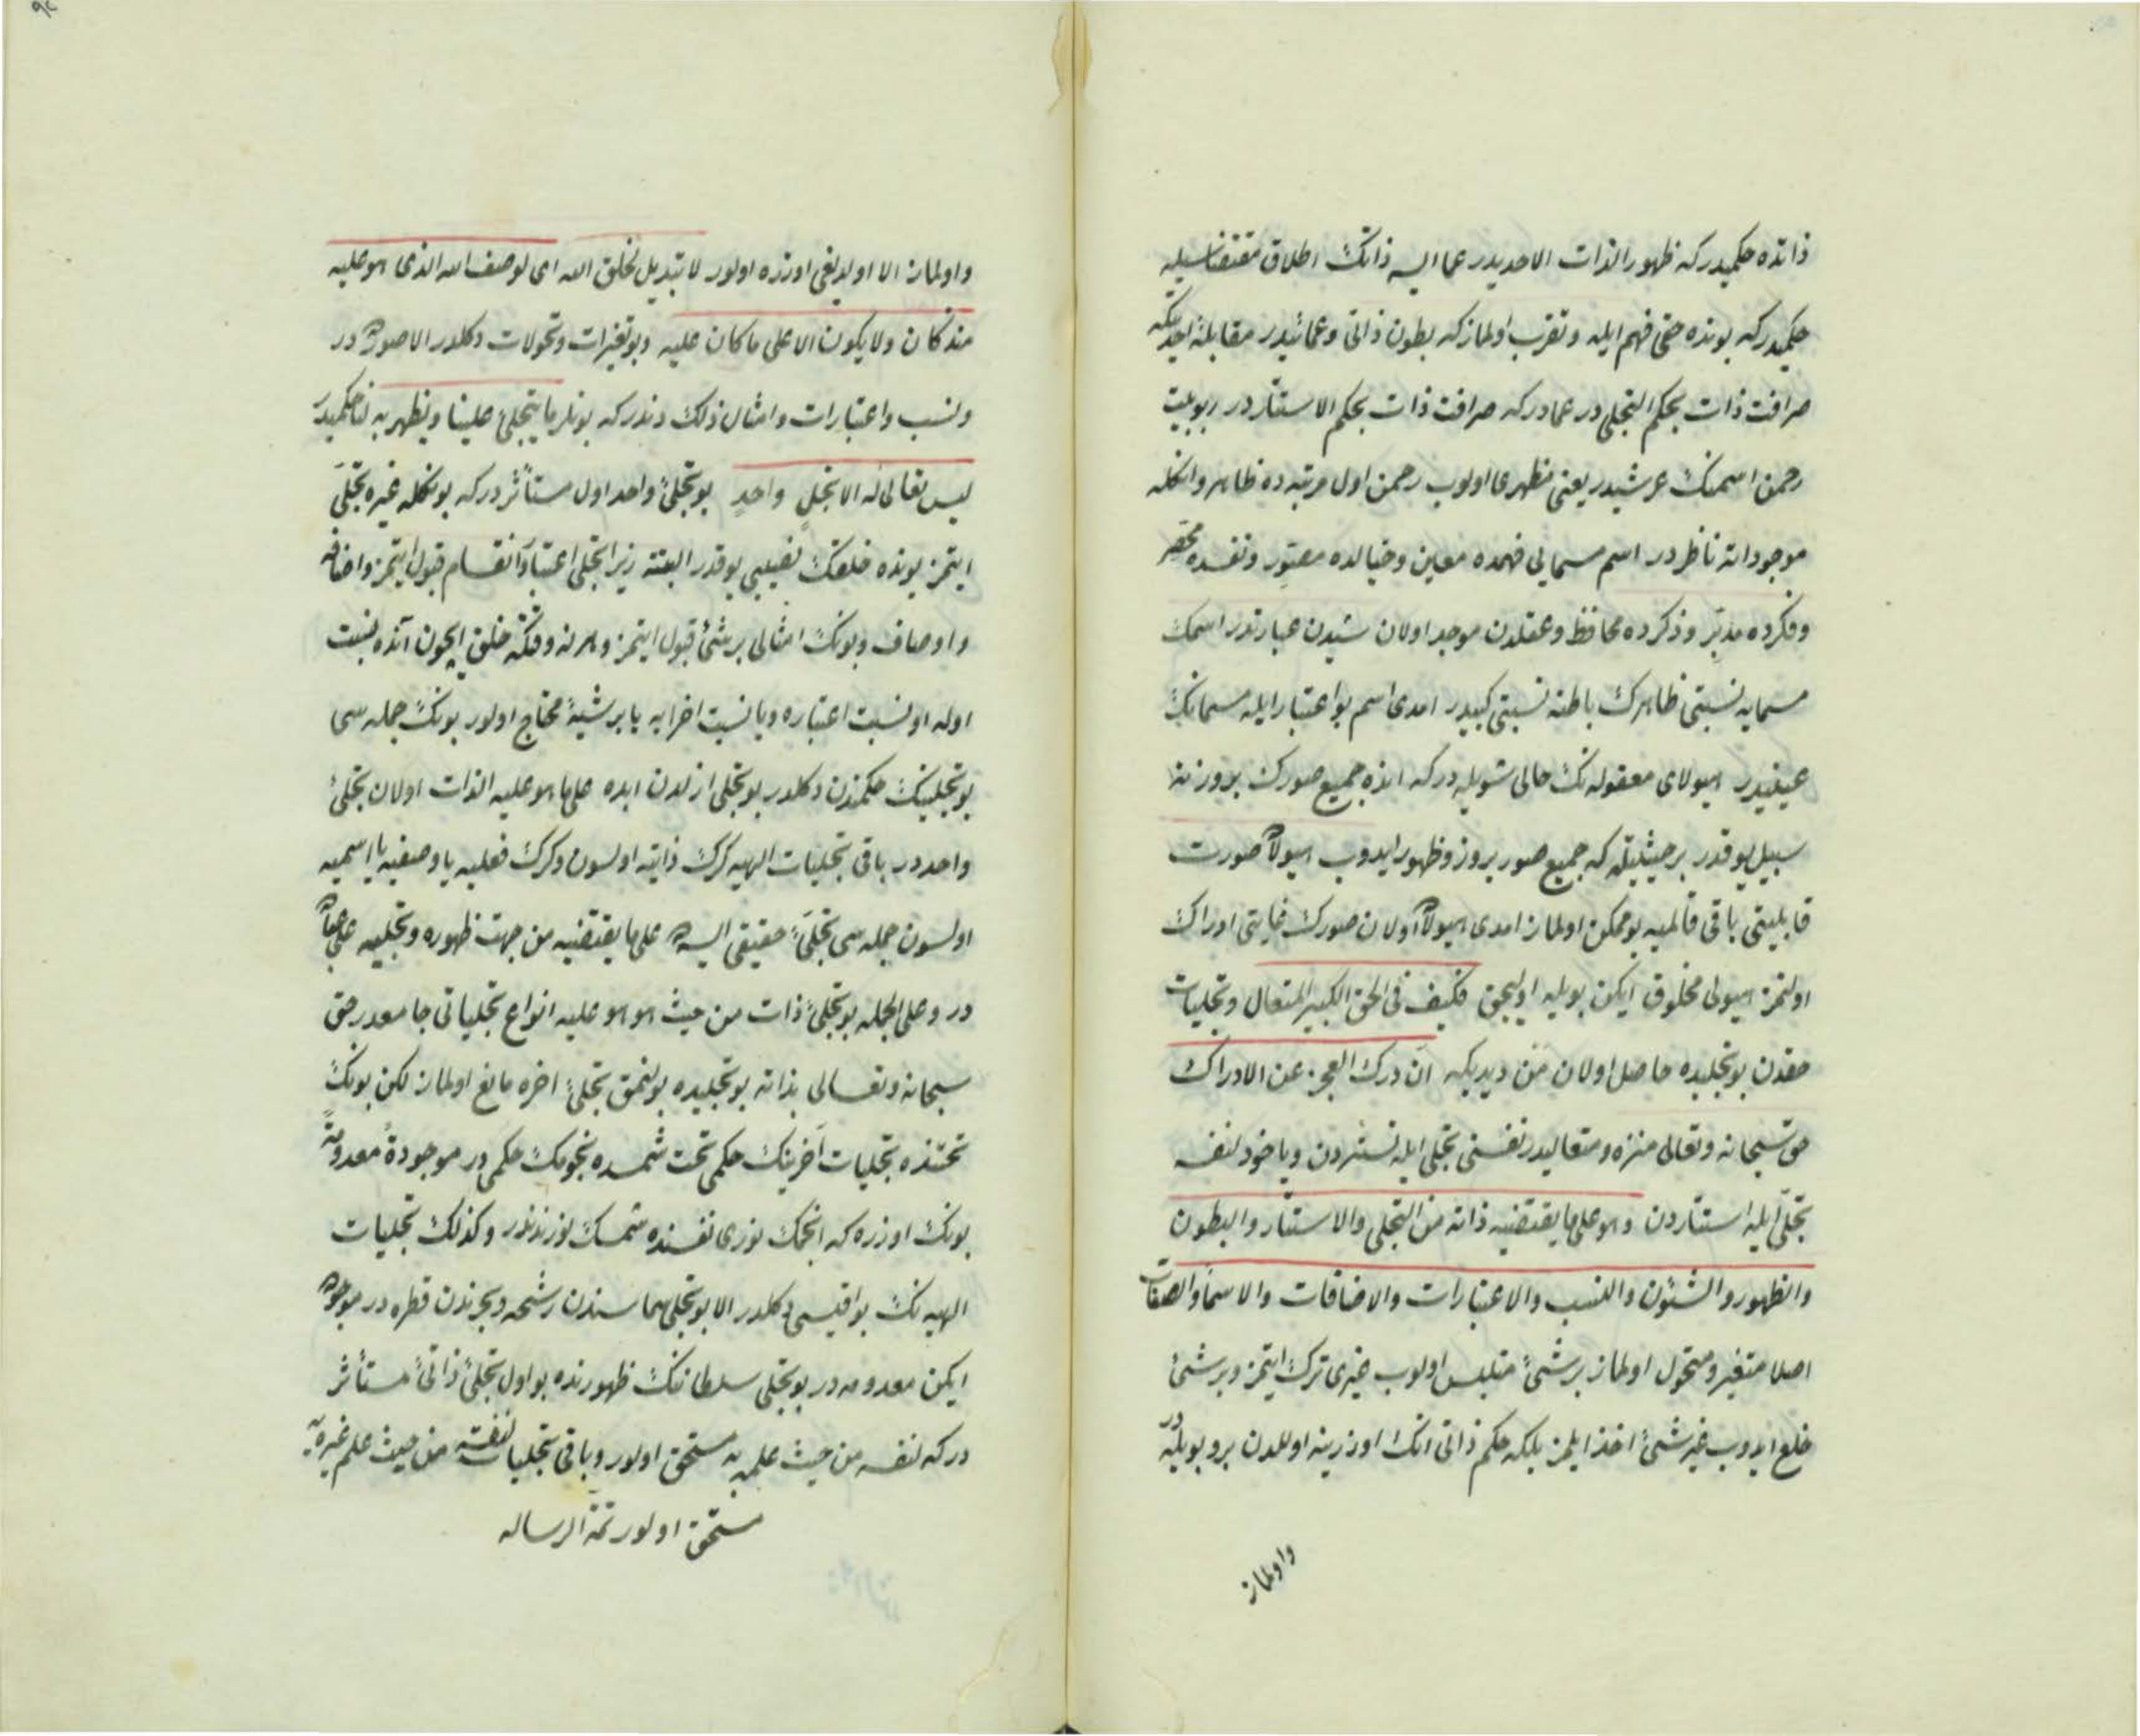 ذاتده حكميدركه ظهور الذات الاحديدر عما ايسه ذاتك اطلاق مقتضاسيله
حكميدركه بونده حقى فهم ايله وتقرب اولمازكه بطون ذاتى وعمائيدر مقابلهٔ
صرافت ذات بحكم التجلى در عمادركه صرافت ذات بحكم الاستتار در ربوبيت
رحمن اسمنك عرشيدر يعنى مظهرى اولوب رحمن اول مرتبه ده ظاهر وانكله
موجوداته ناظردر اسم مسمايى فهمده معين وخيالده مصور ونفسده محضر
وفكرده مدبر وذكرده محافظ وعقلدن موجد اولان شيدن عبارتدر اسمك
مسمايه نسبتى ظاهرك باطنه نسبتى كبيدر امدى اسم بو اعتبار ايله مسمانك
عينيدر هيولاى معقوله نك حالى شويله دركه انده جميع صورك بروزينه
سبيل يوقدر بر حيثيتله كه جميع صور بروز وظهور ايدوب هيولاده صورت
قابليتى باقى قالميه بو ممكن اولماز امدى هيولاده اولان صورك غايتى ادراك
اولنمز هيولى مخلوق ايكن بويله اوليجق فكيف فى الحق الكبير المتعال وتجليات
حقدن بو تجليده حاصل اولان من ديديكه ان درك العجز عن الادراك
حق سبحانه وتعالى منزه ومتعاليدر نفسنى تجلى ايله تستردن ويا خود لنفسه
تجلى ايله استتاردن وهو على ما يقتضيه ذاته من التجلى والاستتار والبطون
والظهور والشئون والنسب والاعتبارات والاضافات والاسما والصفات
اصلا متغير ومتحول اولماز بر شئ متلبس اولوب غيرى ترك ايتمز وبر شئ
خلع ايدوب غير شئ اخذ ايلمز بلكه حكم ذاتى انك اوزرينه اوللدن برو بويله در
واولماز
واولماز الا اولديغى اوزره اولور لا تبديل لخلق الله اى لوصف الله الذى هو عليه
منذ كان ولا يكون الا على ما كان عليه وبو تغيرات وتحولات دكلدر الا صورده در
ونسب واعتبارات وامثال ذلك دندركه بونلر ما يتجلى علينا ويظهر به لنا حكميدر
ليس تعالى له الا تجل واحد بو تجلئ واحد اول مستأثر دركه بونكله غيره تجلى
ايتمز بونده خلقك نصيبى يوقدر البته زيرا تجلى اعتبارا انقسام قبول ايتمز واضافه
واوصاف وبونك امثالى بر شئ قبول ايتمز وهر نه وقتكه خلق ايچون آنده نسبت
اوله او نسبت اعتباره ويا نسبت اخرايه يا بر شيئه محتاج اولور بونك جمله سى
بو تجلينك حكمندن دكلدر بو تجلى ازلدن ابده على ما هو عليه الذات اولان تجلئ
واحددر باقى تجليات الهيه كرك ذاتيه اولسون وكرك فعليه يا وصفيه يا اسميه
اولسون جمله سى تجلئ حقيقى ايسه ده على ما يقتضيه من جهت ظهوره وتجليه على
در وعلى الجمله بو تجلئ ذات من حيث هو هو عليه انواع تجلياتى جامعدر حق
سبحانه وتعالى بذاته بو تجليده بولنمق تجلئ اخره مانع اولماز لكن بونك
تحتنده تجليات آخرينك حكمى تحت شمسده نجومك حكمى در موجودة معدومة
بونك اوزره كه انجمك نورى نفسنده شمسك نورندندر وكذلك تجليات
الهيه نك بواقيسى دكلدر الا بو تجلى سماسندن رشحه وبحرندن قطره در موجوده
ايكن معدومه در بو تجلى سلطاننك ظهورنده بو اول تجلئ ذاتئ مستأثر
دركه لنفسه من حيث علمه به مستحق اولور وباقى تجليات لنفسه من حيث علم غيره به
مستحق اولور تمة الرساله